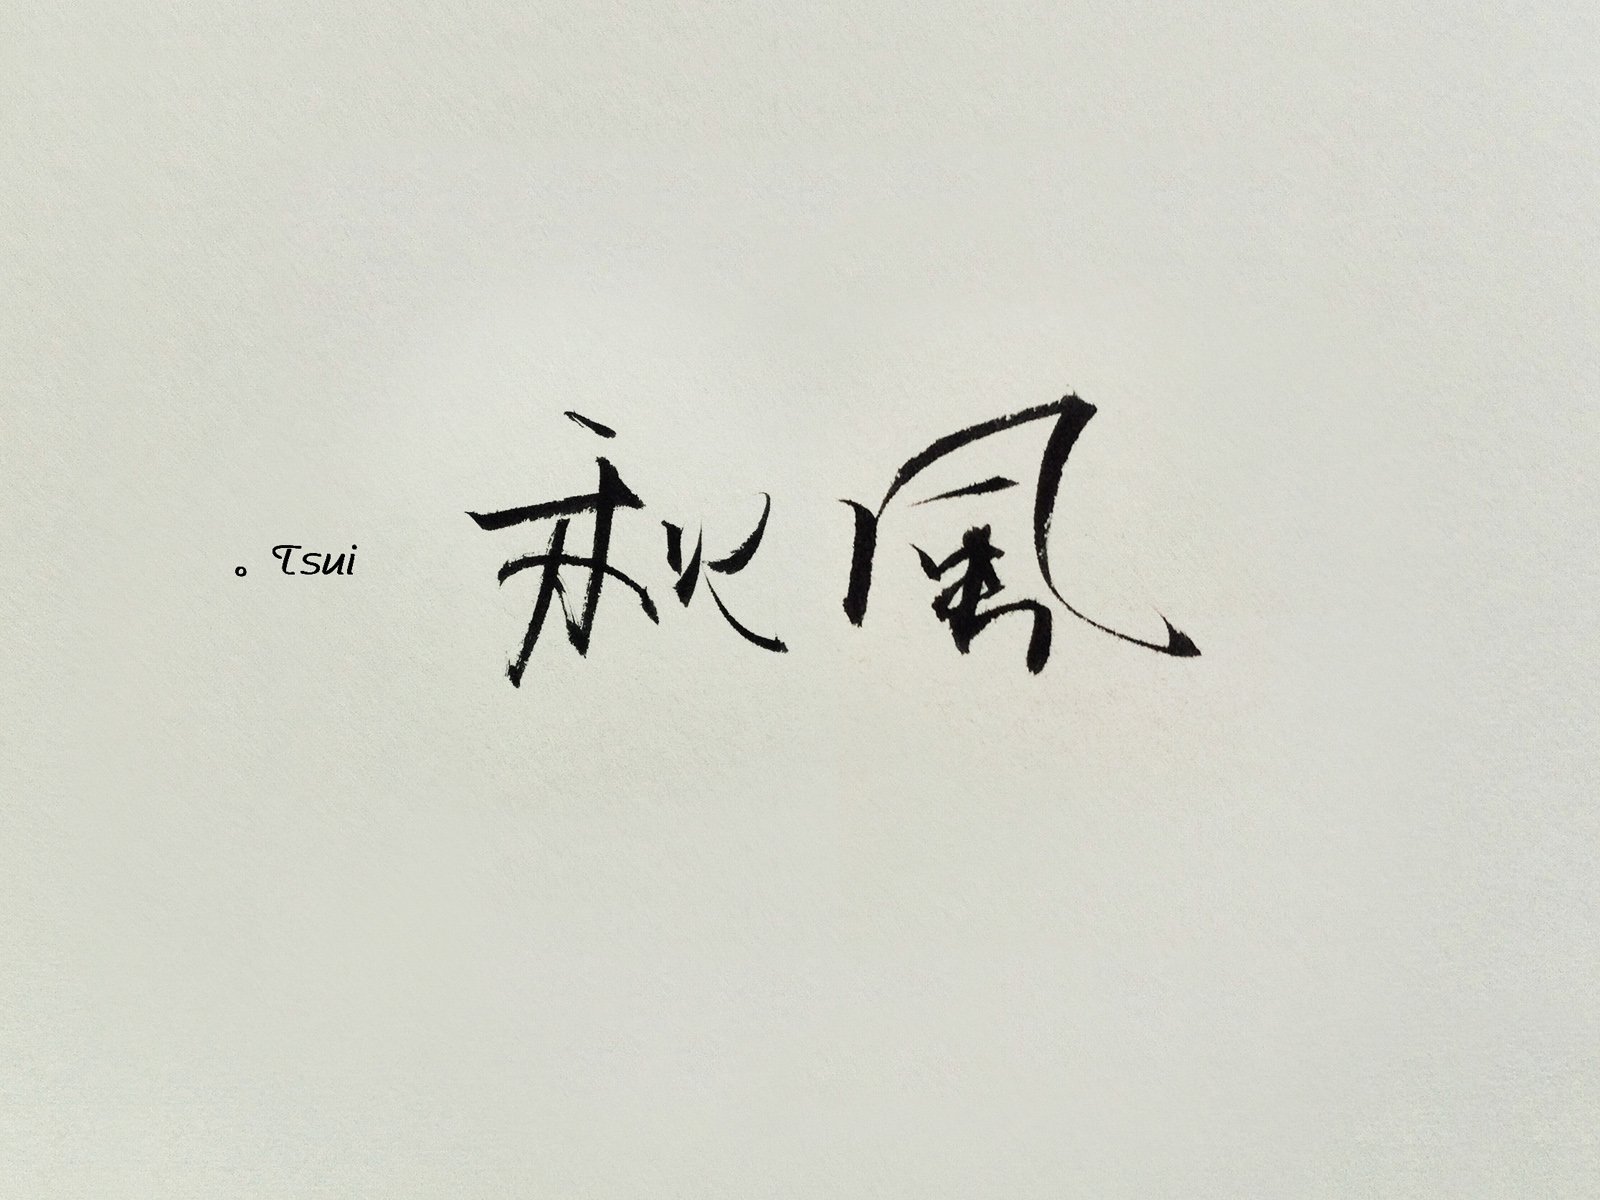 。Tsui 秋風